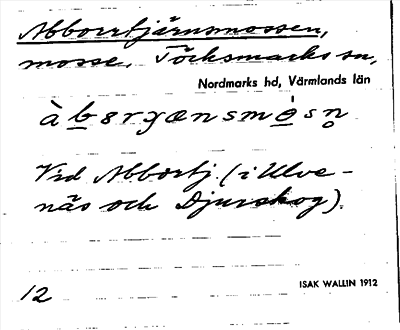 Abborrtjärnsmossen,
mosse. Töcksmarks sn,
Nordmarks hd, Värmlands län
àbɵrɤænsmǿsn̥
Vid Abbortj. (i Ulve-
näs och Djurskog).
12
ISAK WALLIN 1912